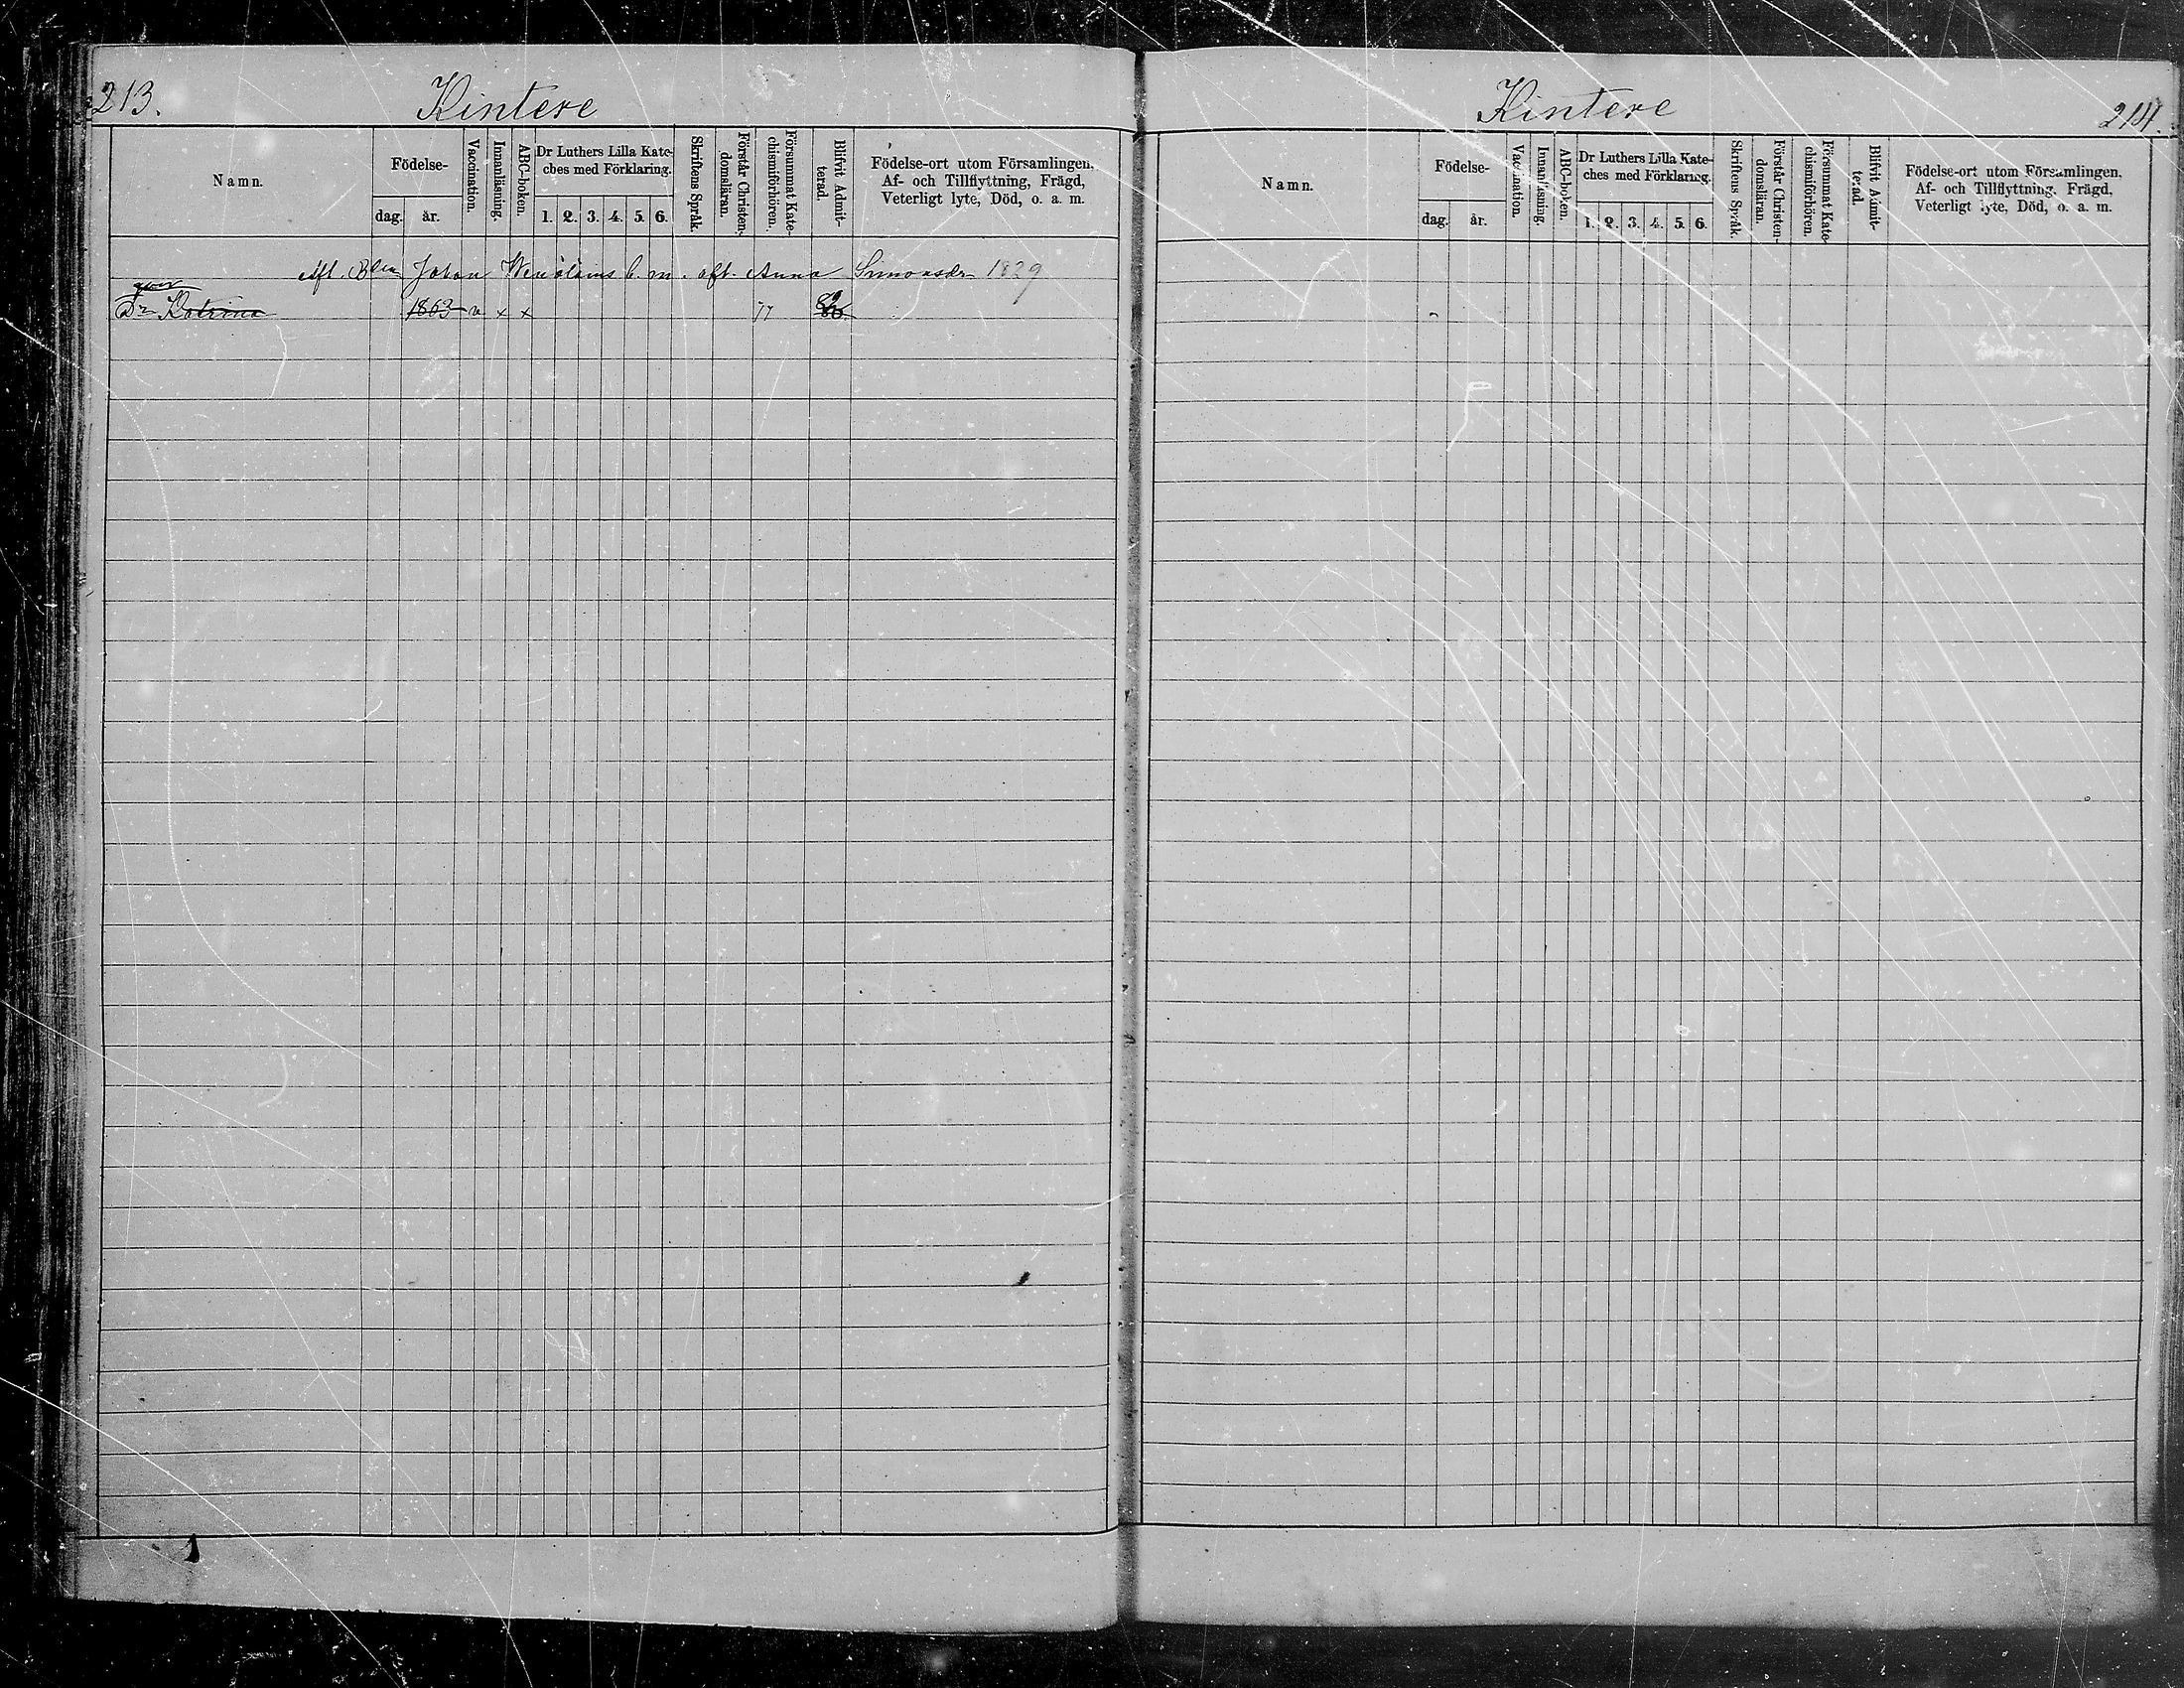 213. Kintere
Namn. Födelse- dag. år. Vaccination. Innanläsning. ABC-boken. Dr Luthers Lilla Kateches med Förklaring. 1. 2. 3. 4. 5. 6. Skriftens Språk. Förstår Christendomsläran. Försummat Katechismiförhören. Blifvit Admitterad. Födelse-ort utom Församlingen, Af- och Tillflyttning, Frägd, Veterligt lyte, Död, o. a. m.
Afl. Johan b. m. afl. Anna Simonsdr 1829
Dr Katrina 1863 v x x 77
Kintere 214.
Namn. Födelse- dag. år. Vaccination. Innanläsning. ABC-boken. Dr Luthers Lilla Kateches med Förklaring. 1. 2. 3. 4. 5. 6. Skriftens Språk. Förstår Christendomsläran. Försummat Katechismiförhören. Blifvit Admitterad. Födelse-ort utom Församlingen, Af- och Tillflyttning, Frägd, Veterligt lyte, Död, o. a. m.